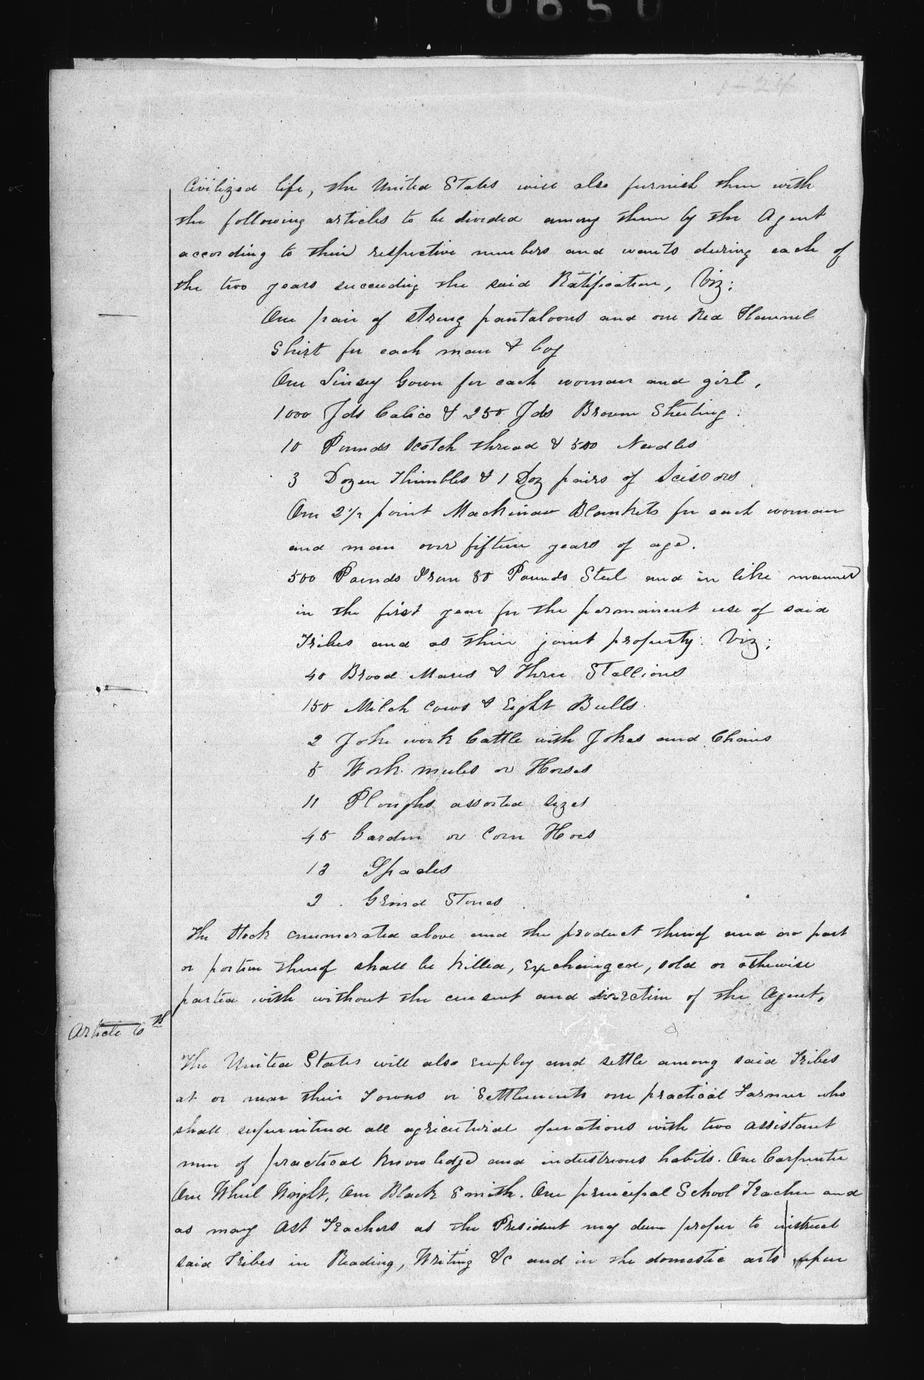 0650
1-24
Civilized life, the United States will also furnish them with
the following articles to be divided among them by the Agent
according to their respective numbers and wants during each of
the two years succeeding the said Ratification, Viz:
One pair of strong pantaloons and one Red Flannel
Shirt for each man & boy
One Linsey Gown for each woman and girl,
1000 Yds Calico & 250 Yds Brown Sheeting.
10 Pounds Scotch thread & 500 Needles
3 Dozen Thimbles & 1 Doz pairs of Scissors
One 2½ point Mackinaw Blankets for each woman
and man over fifteen years of age.
500 Pounds Iron 50 Pounds Steel and in like manner
in the first year for the permanent use of said
Tribes and as their joint property. Viz;
40 Brood Mares & Three Stallions
150 Milch Cows & Eight Bulls
2 Yoke work Cattle with Yokes and Chains
5 Work mules or Horses
11 Ploughs assorted sizes
45 Garden or Corn Hoes
13 Spades
2 Grind Stones
The Stock enumerated above and the product thereof and no part
or portion thereof shall be killed, Exchanged, sold or otherwise
parted with without the consent and direction of the Agent.
Article 6th
The United States will also Employ and settle among said Tribes
at or near their Towns or Settlements one practical Farmer who
shall superintend all agricultural operations with two assistant
men of practical Knowledge and industrious habits. One Carpenter
One Wheel Wright, One Black Smith. One principal School Teacher and
as many Ast Teachers as the President may deem proper to instruct
said Tribes in Reading, Writing &c and in the domestic arts upon